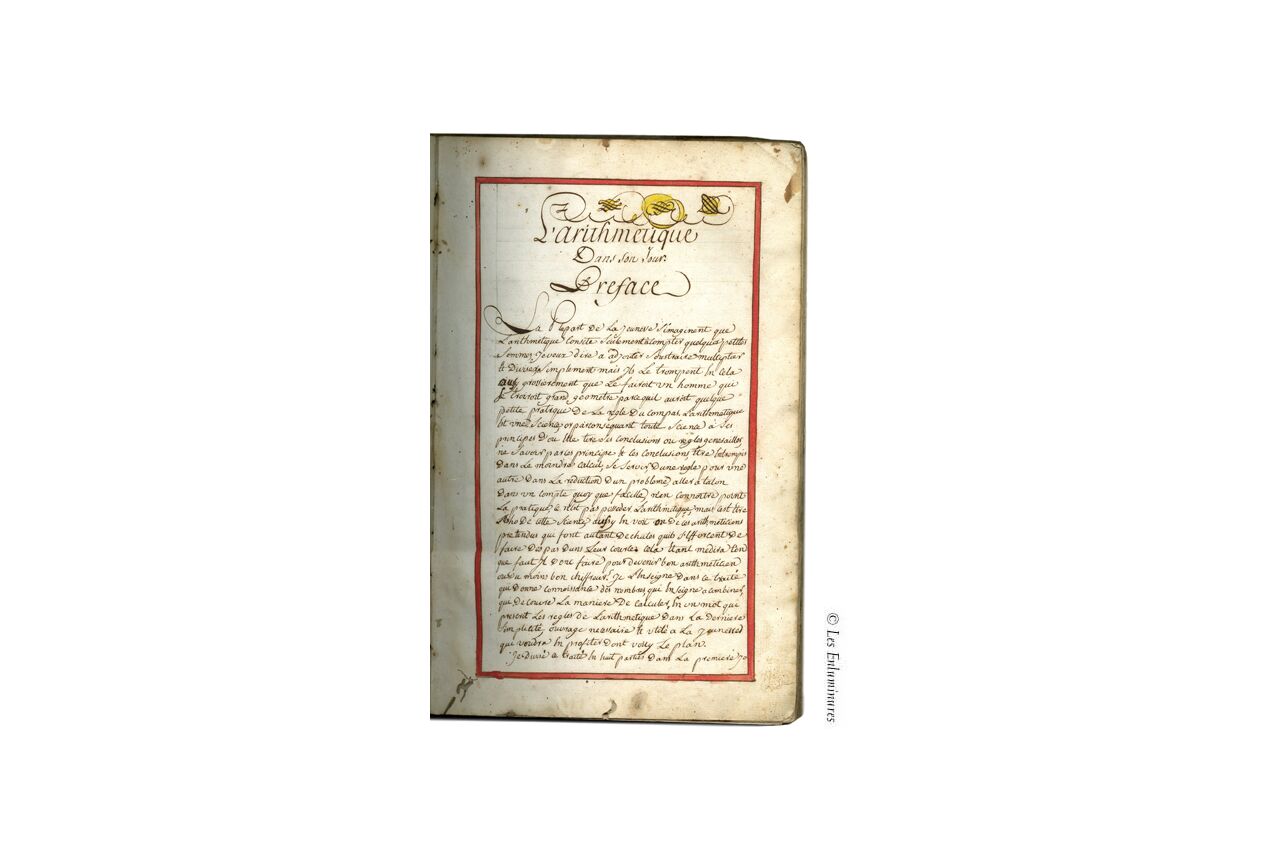 L'arithmetique
Dans son Jour.
Preface
La Plupart De La jeunesse s'imaginent que
L'arithmetique consite seulement a compter quelques petites
sommes, je veux dire a adjouter soustraire multiplier
et Diviser simplement mais Ils se trompent En cela
aussy grossierement que Le fairoit un homme qui
se croiroit grand geometre parcequil auroit quelque
petite pratique De La regle Du compas L'arithmetique
Et une science, or par consequant toute science a ses
principes D'ou Elle tire ses conclusions ou regles generalles,
ne savoir pas ces principe & ces conclusions, Etre
Dans Le moindre calcul, se servir D'une regle pour une
autre Dans La reduction D'un probleme, aller a taton
Dans un compte quoy que facille, n'en connoitre point
La pratique, ce n'est pas posseder L'arithmetique, mais c'est Etre
De cette science, aussy En voit on De ces arithmeticiens
pretendus qui font autant De chutes quils s'Efforcent De
faire Des pas Dans Leur course cela Etant me dira t'en
que faut Il Donc faire pour Devenir bon arithmeticien
ou Du moins bon chiffreur, Je L'Enseigne Dans ce traité
qui Donne connoissance Des nombres, qui Enseigne a combiner,
qui Decouvre La maniere De calculer, En un mot qui
prescrit Les regles De L'arithmetique Dans La Derniere
simplicité, ouvrage necessaire & utile a La jeunesse
qui voudra En profiter Dont voicy Le plan.
Je Divise ce traité En huit parties Dans La premiere Jo
© Les Enluminures